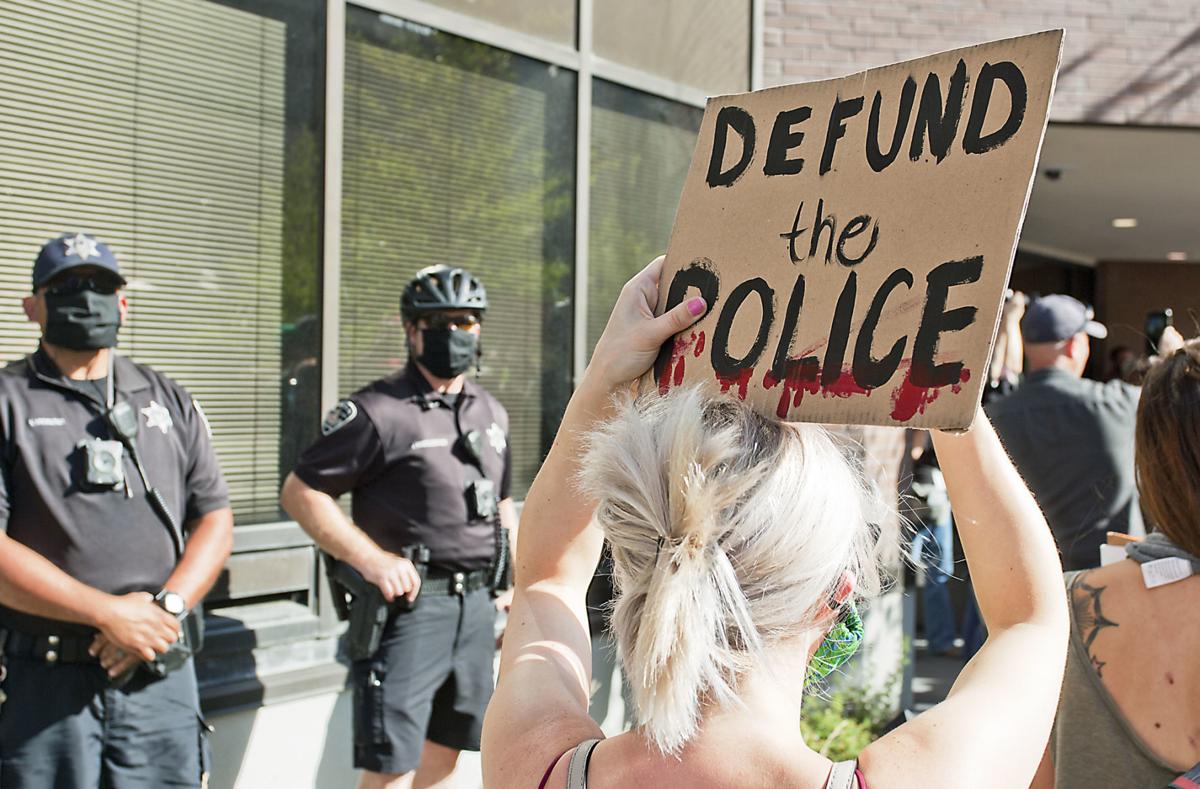 DEFUND
the
POLICE